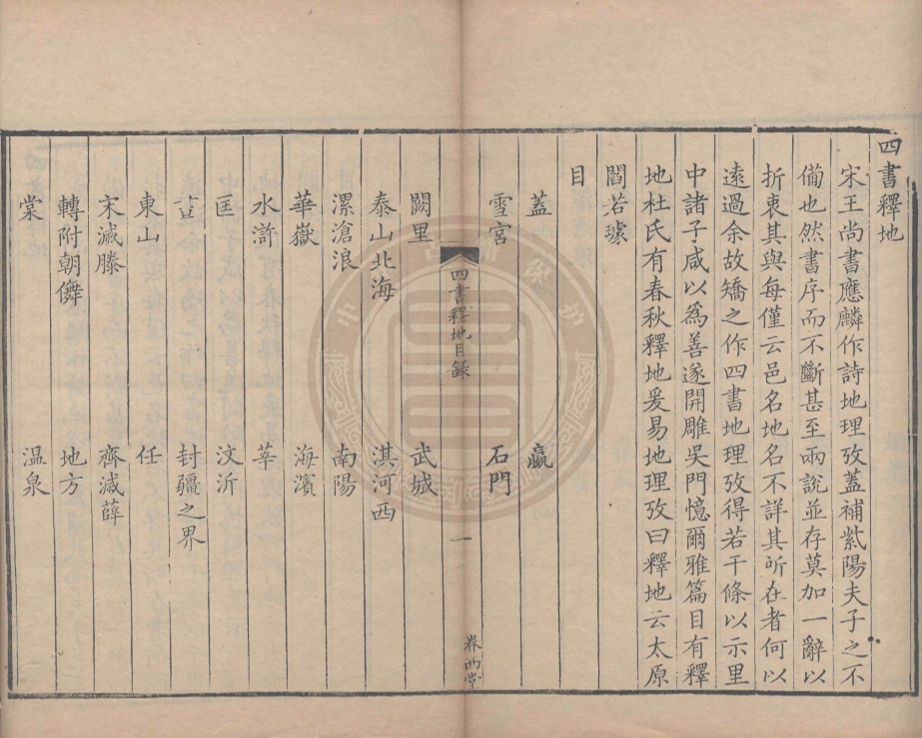 四書釋地
宋王尚書應麟作詩地理攷蓋補紫陽夫子之不
備也然書序而不斷甚至兩說並存莫加一辭以
折衷其與每僅云邑名地名不詳其所在者何以
遠過余故矯之作四書地理攷得若干條以示里
中諸子咸以為善遂開雕吳門憶爾雅篇目有釋
地杜氏有春秋釋地爰易地理攷曰釋地云太原
閻若璩
目
蓋 嬴
雪宮 石門
四書釋地目録 一 眷西堂
闕里 武城
泰山北海 淇河西
漯滄浪 南陽
華嶽 海濱
水滸 莘
匡 汶沂
封疆之界
東山 任
宋滅滕 齊滅薛
轉附朝儛 地方
棠 温泉